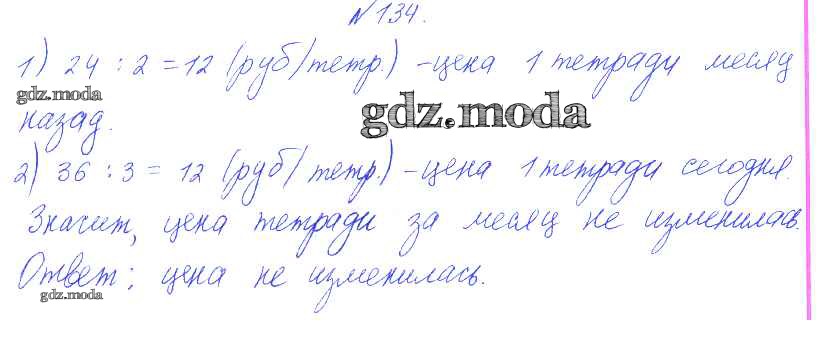 № 134.
1) 24 : 2 = 12 (руб/тетр.) - цена 1 тетради месяц
gdz.moda
назад.
gdz.moda
2) 36 : 3 = 12 (руб/тетр.) - цена 1 тетради сегодня.
Значит, цена тетради за месяц не изменилась.
Ответ: цена не изменилась.
gdz.moda